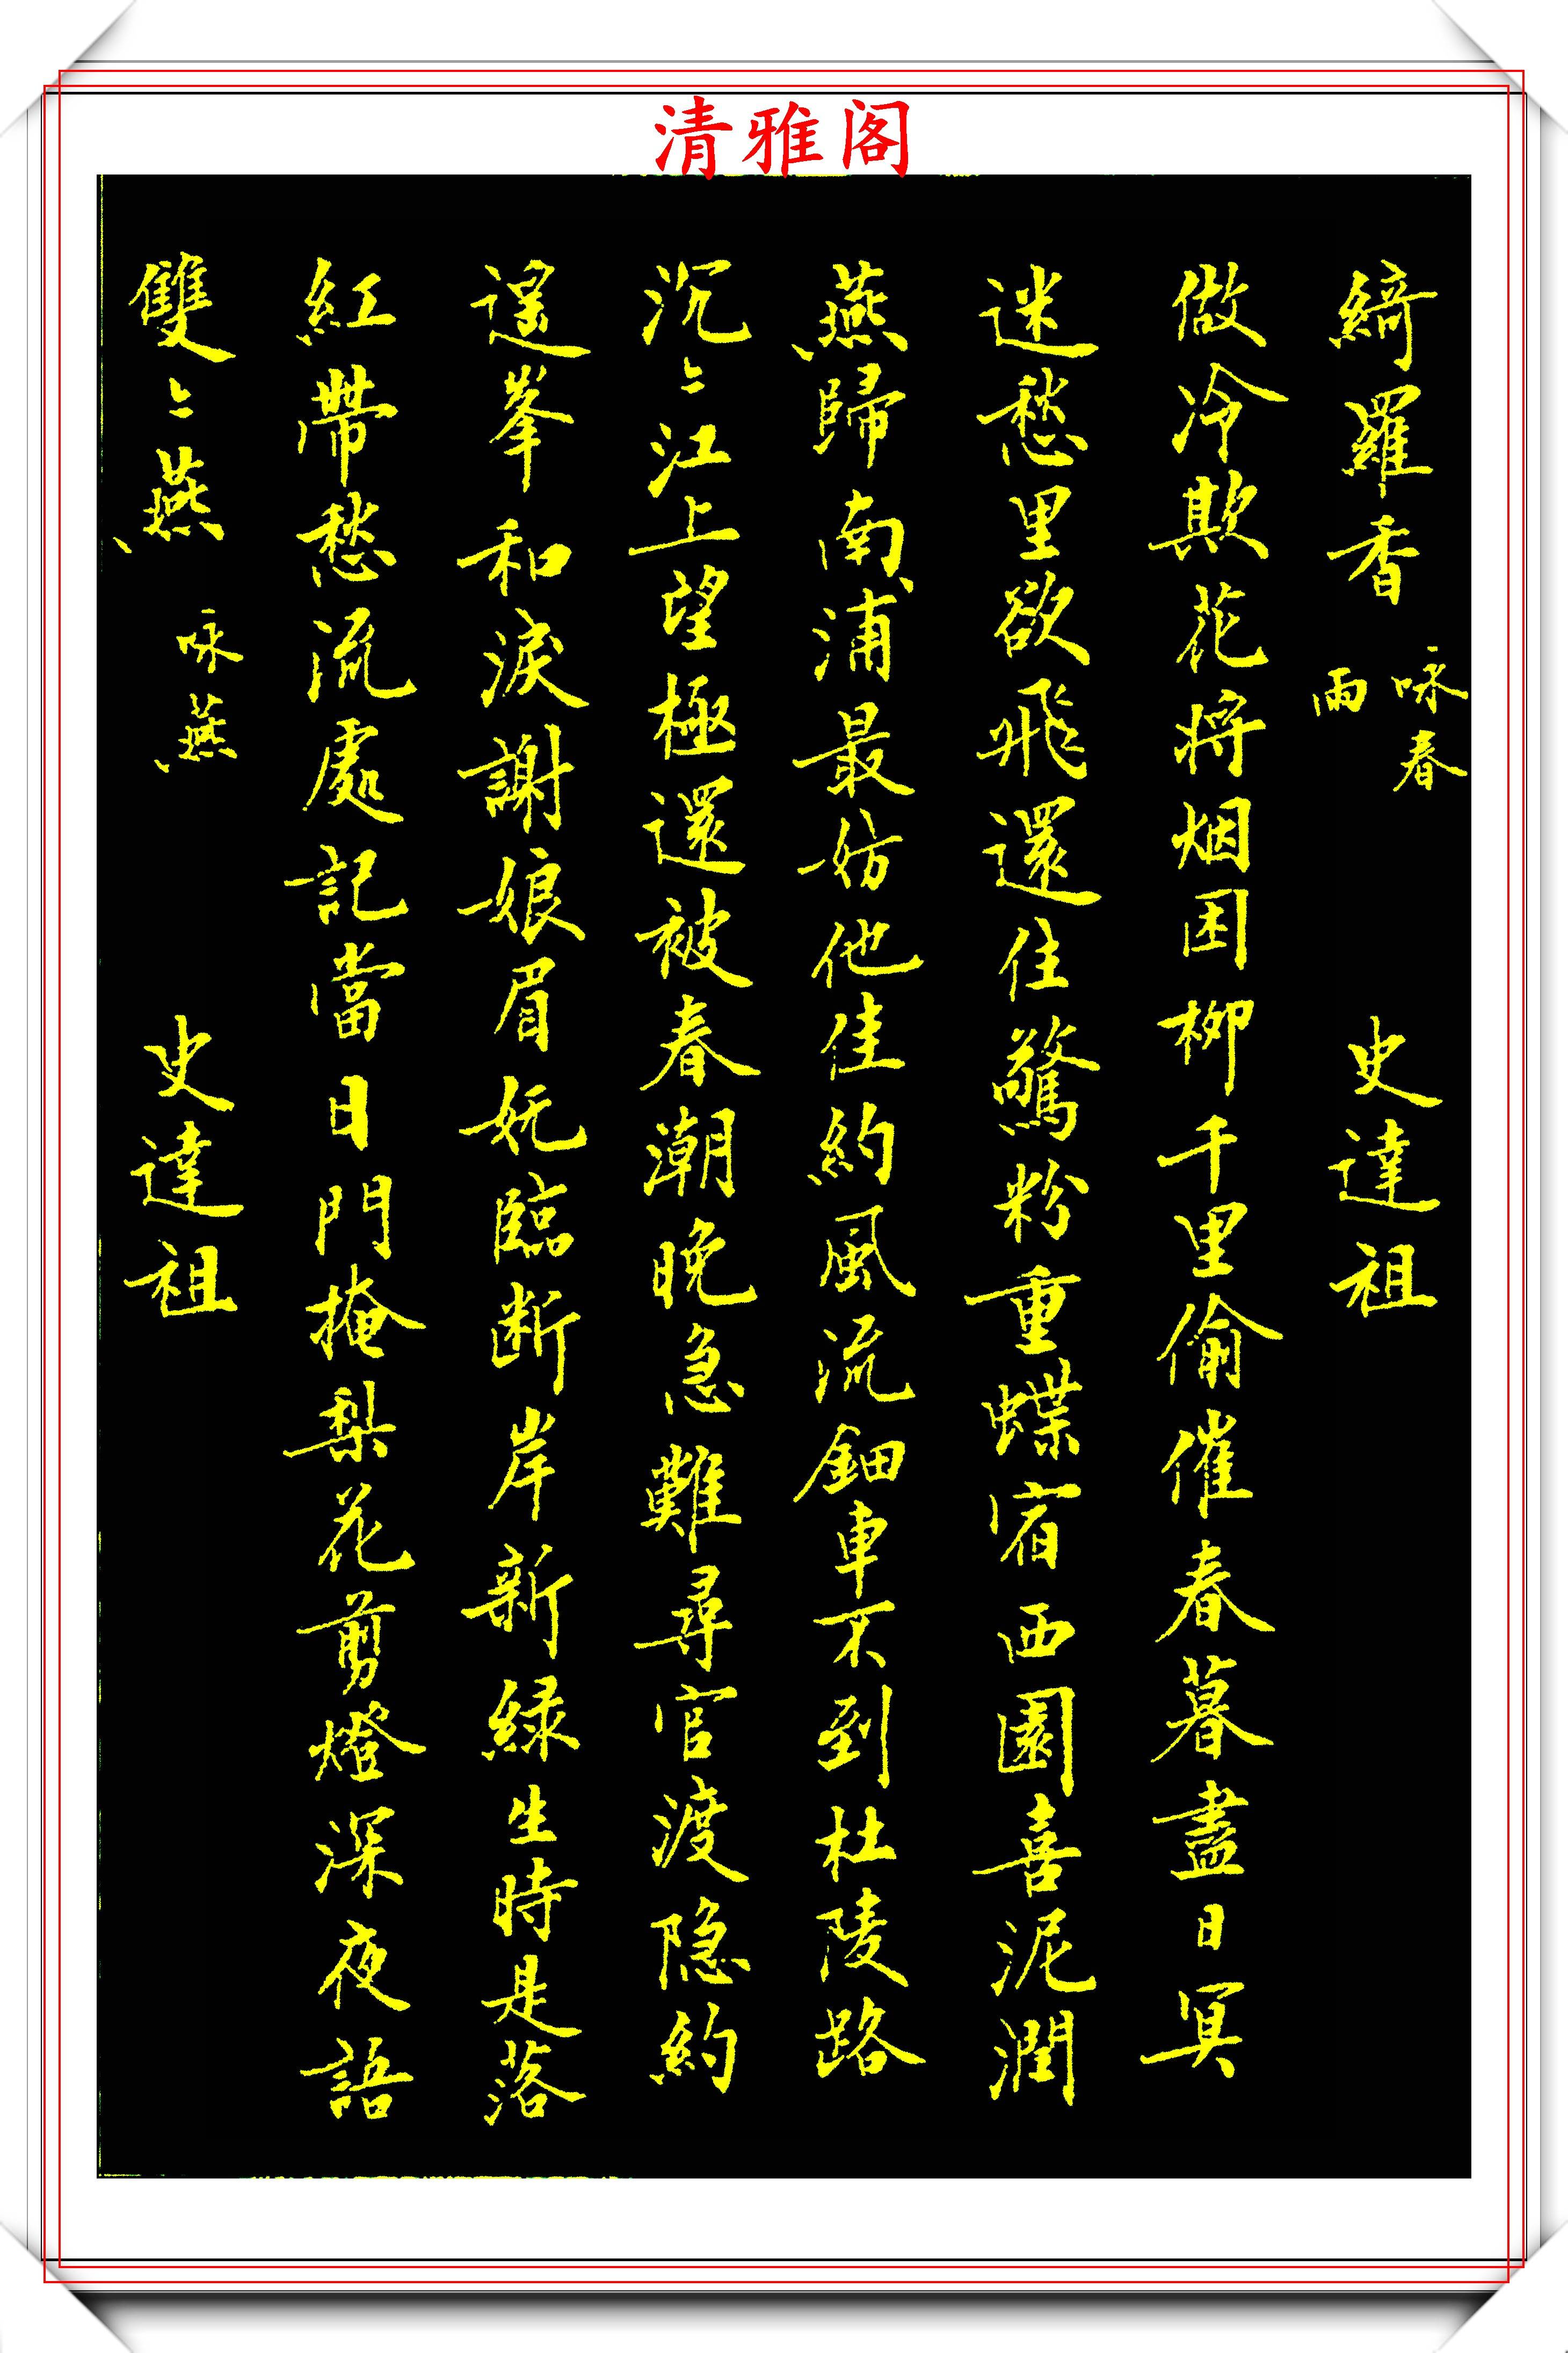 清雅阁
綺羅香 咏春雨 史達祖
做冷欺花将烟困柳千里偷催春暮盡日冥
迷愁里欲飛還住驚粉重蝶宿西園喜泥潤
燕歸南浦最妨他佳約風流鈿車不到杜陵路
沉〻江上望極還被春潮晚急難尋官渡隐約
遥峯和淚謝娘眉妩臨断岸新緑生時是落
紅帶愁流處記當日門掩梨花剪燈深夜語
雙〻燕 咏燕 史達祖